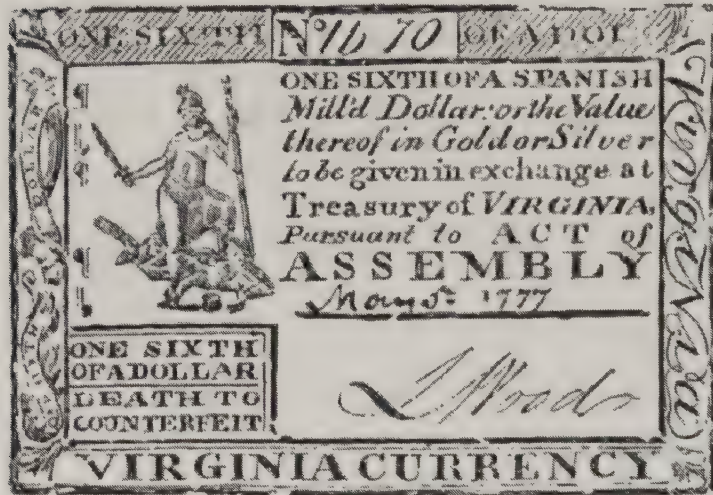 ONE SIXTH No 1670 OF A DOL
ONE SIXTH OF A SPANISH
Mill'd Dollar: or the Value
thereof in Gold or Silver
to be given in exchange at
Treasury of VIRGINIA,
Pursuant to ACT of
ASSEMBLY
May 5: 1777
ONE SIXTH
OF A DOLLAR
DEATH TO
COUNTERFEIT
VIRGINIA CURRENCY
Virginia